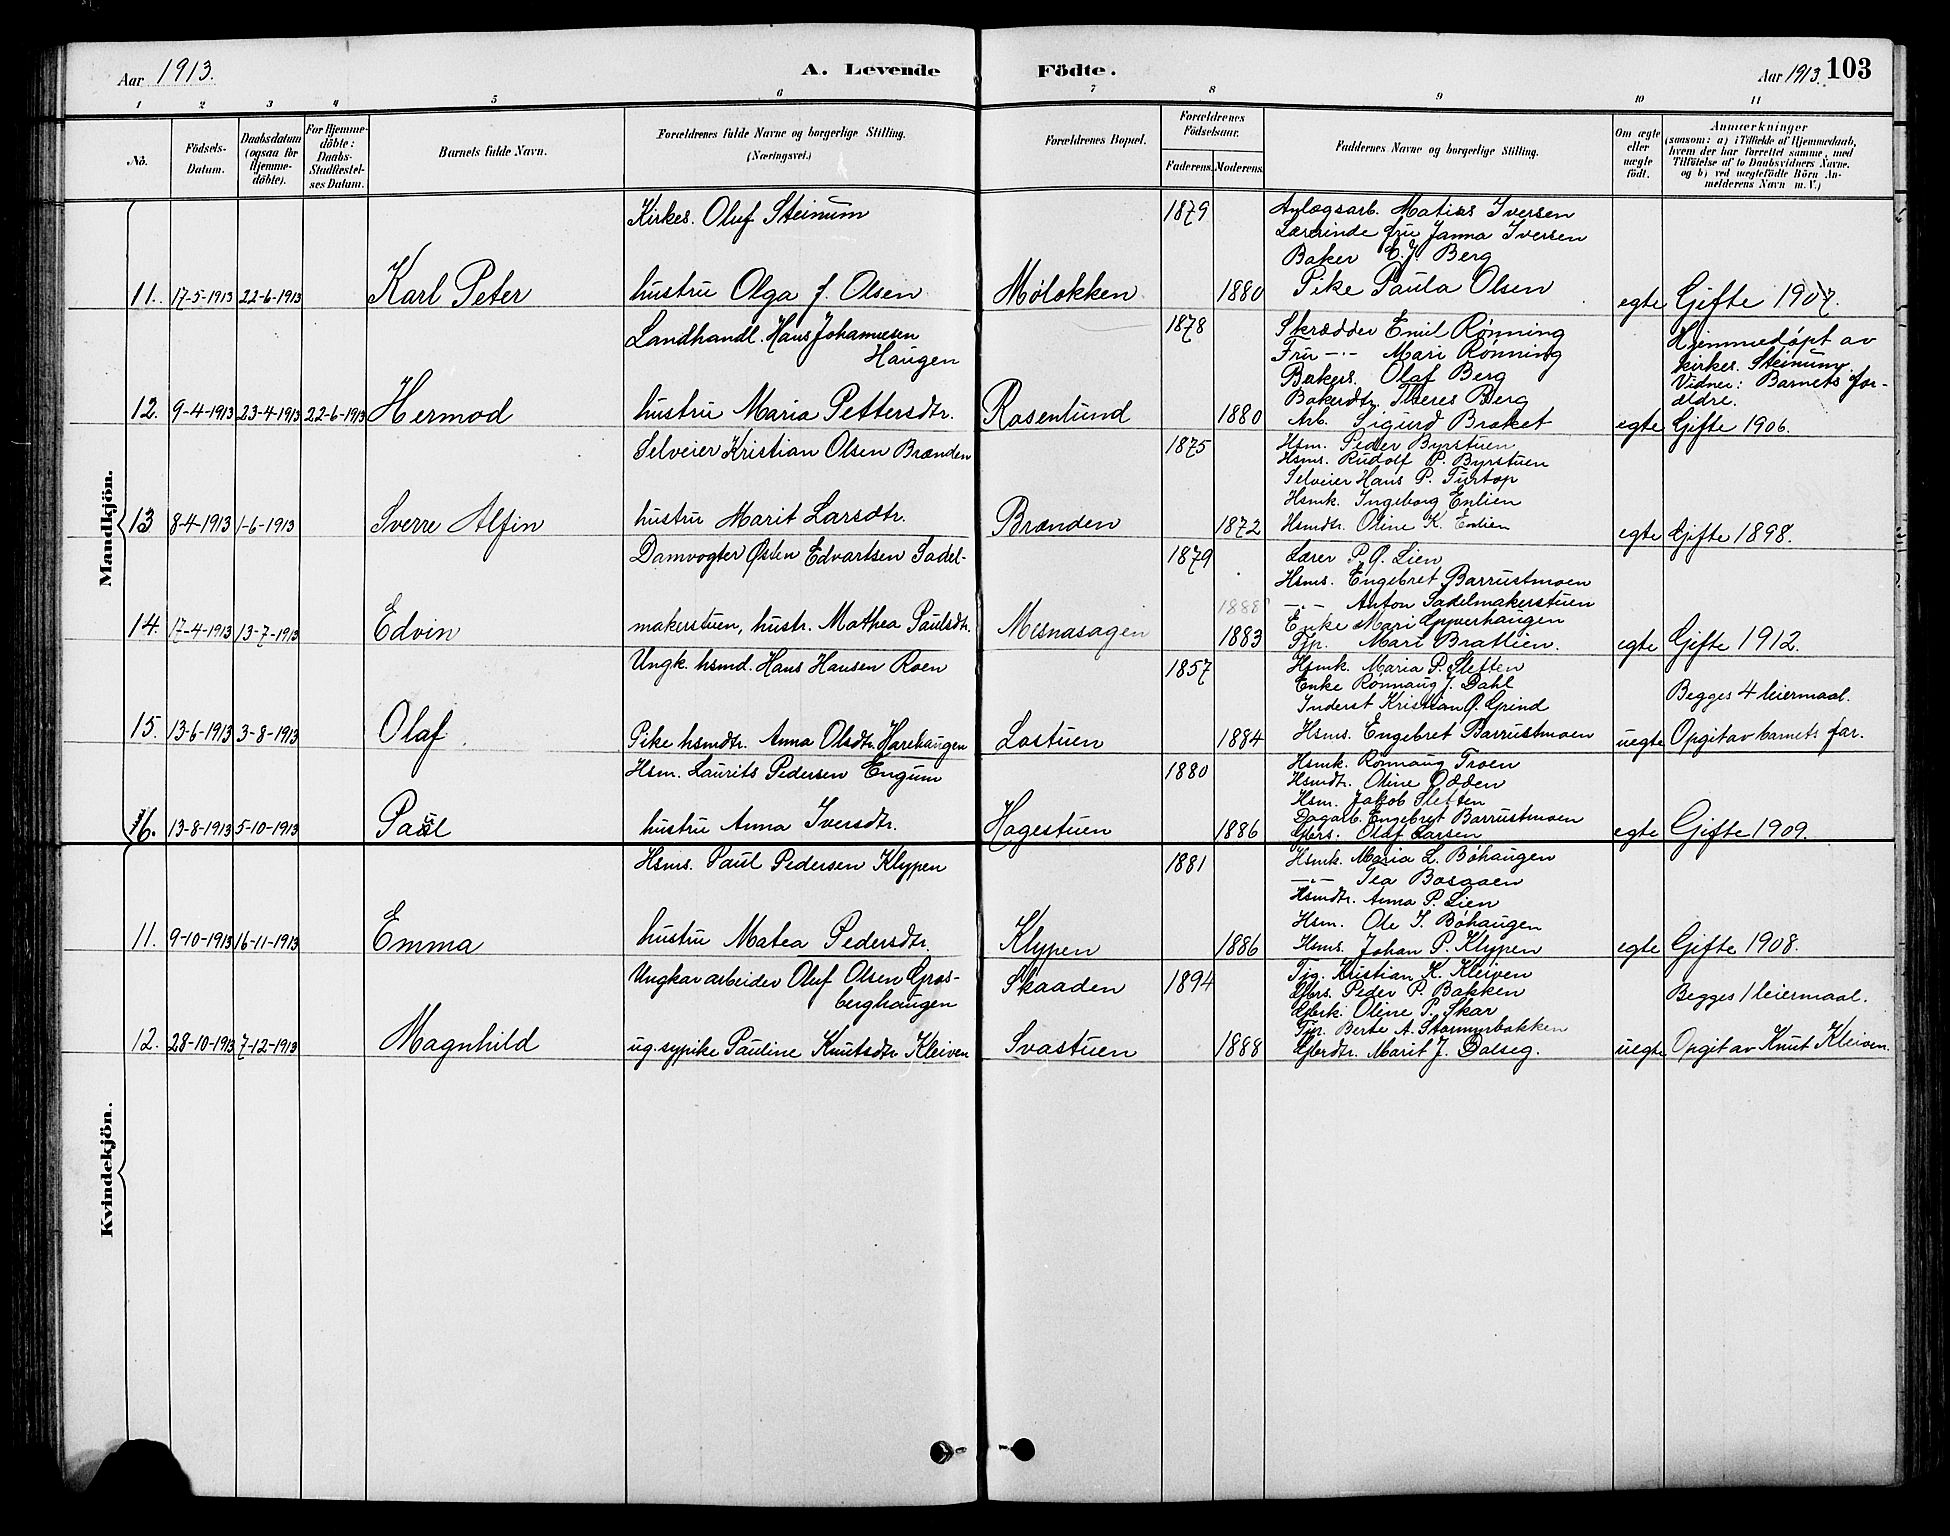 Aar 1913.
A. Levende
Födte.
Aar 1913.
103
1
2
3
4
5
6
7
8
9
10
11
No.
Födsels-
Datum.
Daabsdatum
(ogsaa for
Hjemme-
döbte).
For Hjemme-
döbte:
Daabs-
Stadfæstel-
ses Datum.
Barnets fulde Navn.
Forældrenes fulde Navne og borgerlige Stilling.
(Næringsvei.)
Forældrenes Bopæl.
Forældrenes
Födselsaar.
Faderens.
Moderens.
Faddernes Navne og borgerlige Stilling.
Om ægte
eller
uægte
født.
Anmærkninger
(saasom: a) i Tilfælde af Hjemmedaab,
hvem der har forrettet samme, med
Tilföielse af to Daabsvidners Navne.
og b) ved uægtefödte Börn An-
melderens Navn m. V.)
Mandkjön.
Kirkes. Oluf Steinum
1879
Anlægsarb. Matias Iversen
Lærerinde fru Janna Iversen
Baker E. J. Berg
11. 17-5-1913 22-6-1913 Karl Peter hustru Olga f. Olsen Mølokken 1880 Pike Paula Olsen egte Gifte 1907.
Landhandl. Hans Johannesen
Haugen
1878
Skrædder Emil Rønning
Fru -"- Mari Rønning
Bakers. Olaf Berg
Bakerdtr. Theres Berg
Hjemmedøpt av
kirkes. Steinum.
Vidner: Barnets for-
ældre.
12. 9-4-1913 23-4-1913 22-6-1913 Hermod hustru Maria Pettersdtr. Rosenlund 1880 Arb. Sigurd Braket egte Gifte 1906.
Selveier Kristian Olsen Brænden
1875
Hsm. Peder Byrstuen
Hsms. Rudolf P. Byrstuen
Selveier Hans P. Turtop
Hsmk. Ingeborg Enlien
13 8-4-1913 1-6-1913 Sverre Alfin hustru Marit Larsdtr. Brænden 1872 Hsmdtr. Oline K. Enlien egte Gifte 1898.
Damvogter Østen Edvartsen Sadel-
1879
Lærer P. O. Lien
Hsms. Engebret Barrustmoen
1888
-"- Anton Sadelmakerstuen
Enke Mari Opperhaugen
14. 17-4-1913 13-7-1913 Edvin makerstuen, hustr. Mathea Paulsdtr. Mesnasagen 1883 Tjp. Mari Brattlien. egte Gifte 1912.
Ungk. hsmd. Hans Hansen Roen
1857
Hsmk. Maria P. Sletten
Enke Rønnaug J. Dahl
Inderst Kristian O. Grind
Begges 4 leiermaal.
15. 13-6-1913 3-8-1913 Olaf Pike hsmdtr. Anna Olsdtr. Harehaugen Lostuen 1884 Hsms. Engebret Barrustmoen uegte Opgit av barnets far.
Hsm. Laurits Pedersen Engum
1880
Hsmk. Rønnaug Troen
Hsmdtr. Oline Odden
Hsm. Jakob Sletten
Dagarb. Engebret Barrustmoen
16. 13-8-1913 5-10-1913 Paul hustru Anna Iversdtr. Hagestuen 1886 Gbrs. Olaf Larsen egte Gifte 1909.
Kvindekjön.
Hsms. Paul Pedersen Klypen
1881
Hsmk. Maria L. Bøhaugen
-"- Tea Bosaaen
Hsmdtr. Anna P. Lien
Hsm. Ole I. Bøhaugen
11. 9-10-1913 16-11-1913 Emma hustru Matea Pedersdtr. Klypen 1886 Hsms. Johan P. Klypen egte Gifte 1908.
Ungkar arbeider Oluf Olsen Gras-
berghaugen
Skaaden
1894
Tjg. Kristian K. Kleiven
Gbrs. Peder P. Bakken
Gbrk. Oline P. Skar
Tjp. Berte A. Stormnbakken
Begges 1 leiermaal.
12. 28-10-1913 7-12-1913 Magnhild ug. sypike Pauline Knutsdtr Kleiven Svastuen 1888 Gbrdtr. Marit J. Dalseg. uegte Opgit av Knut Kleiven.